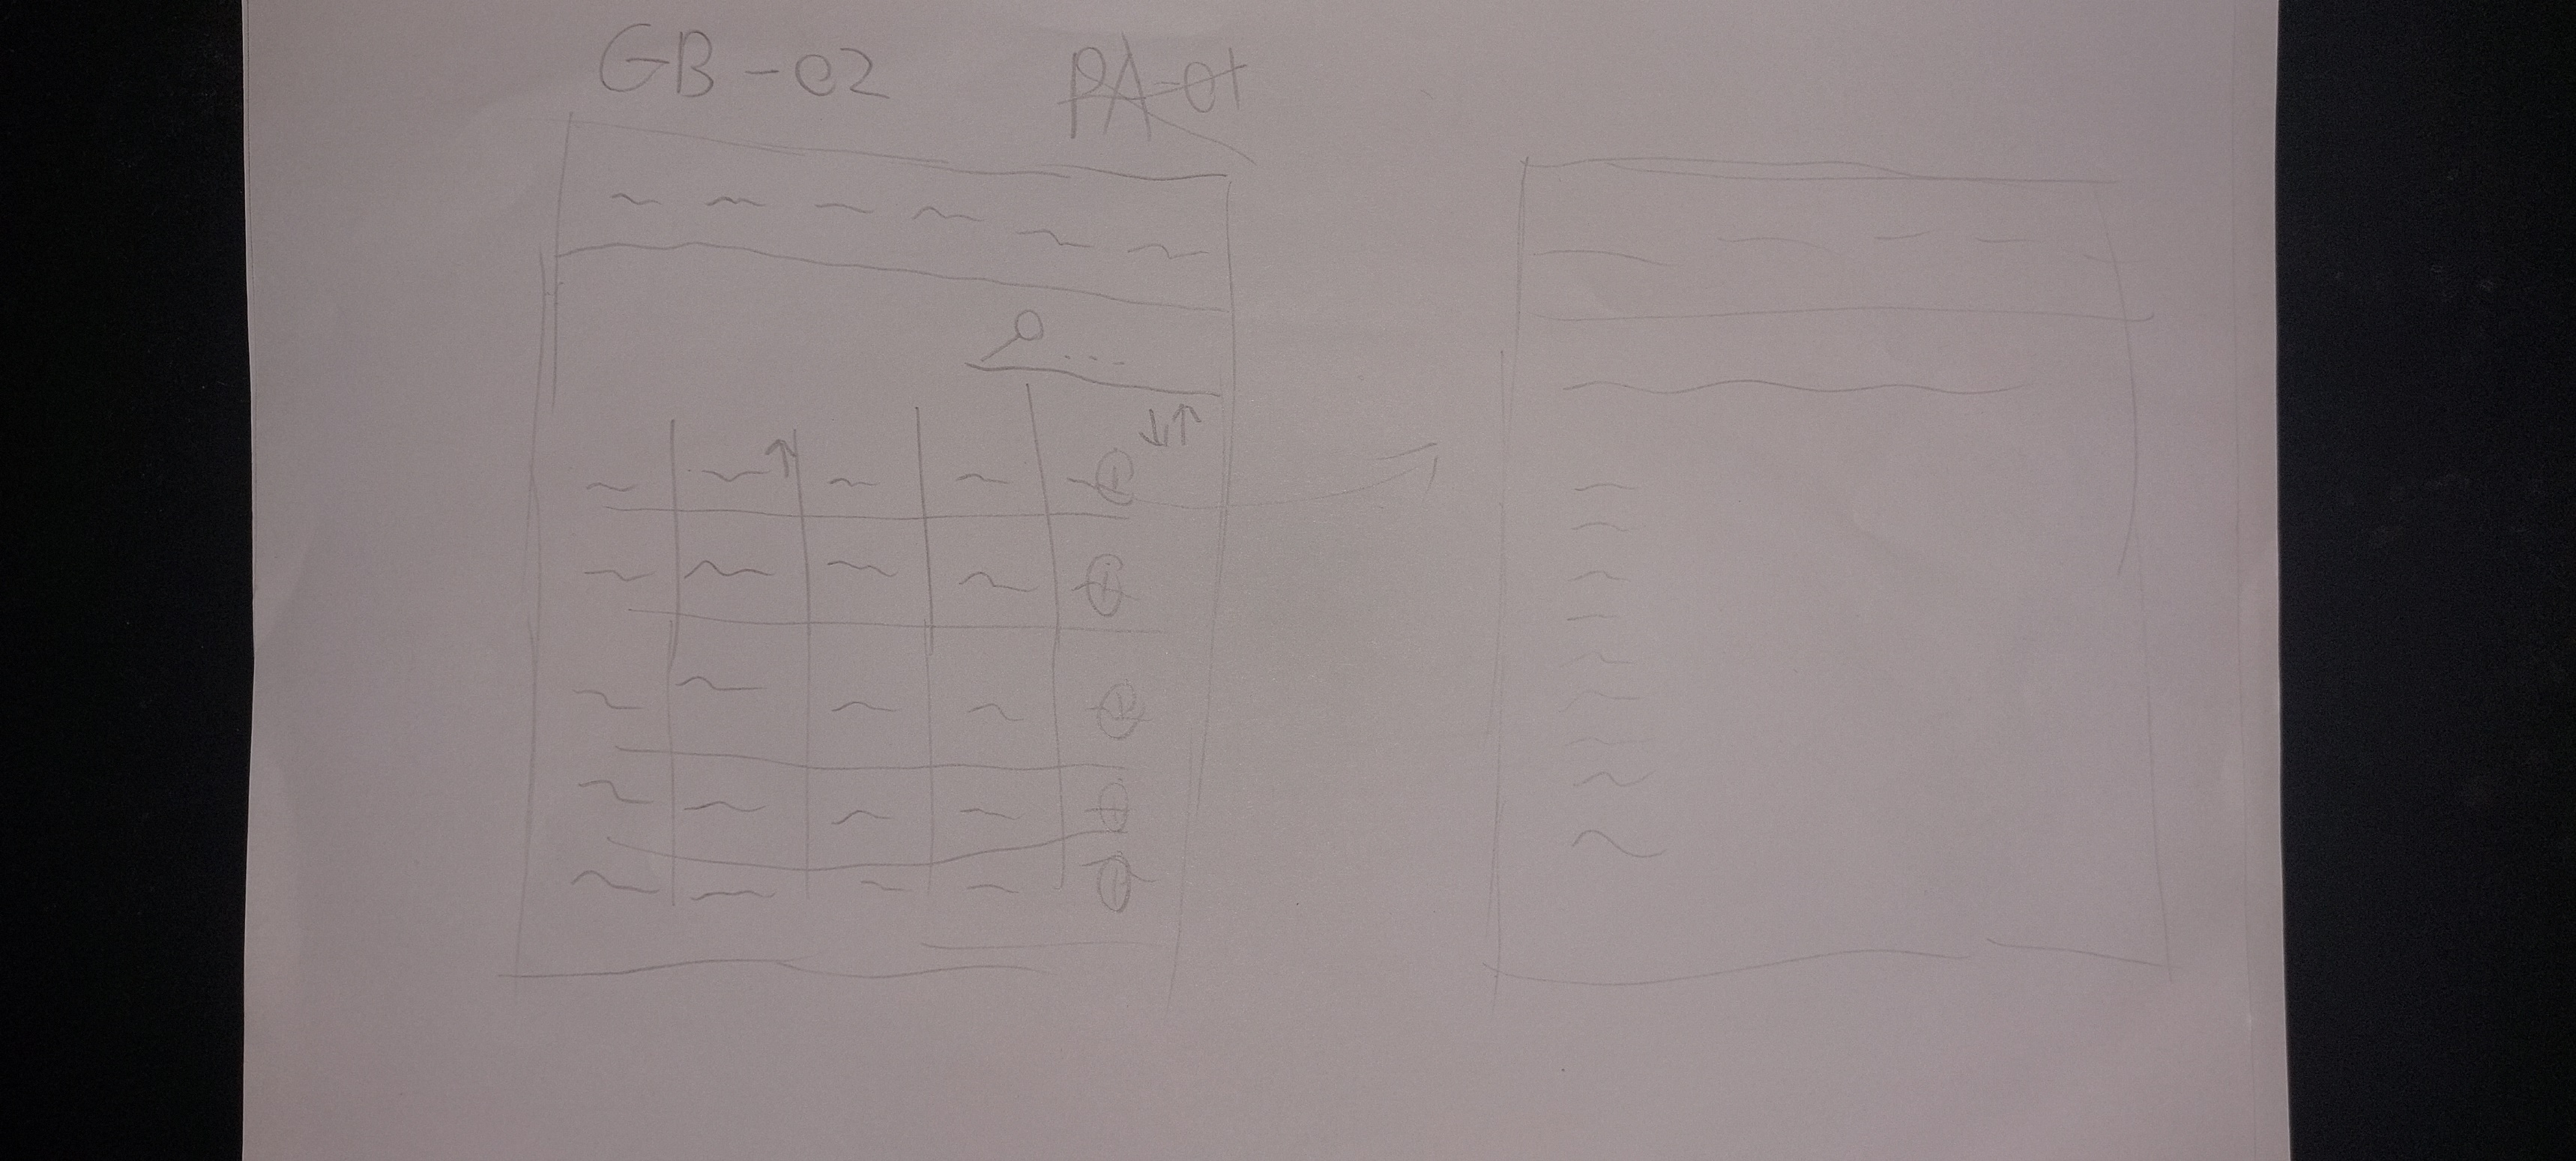 GB-02 PA-01